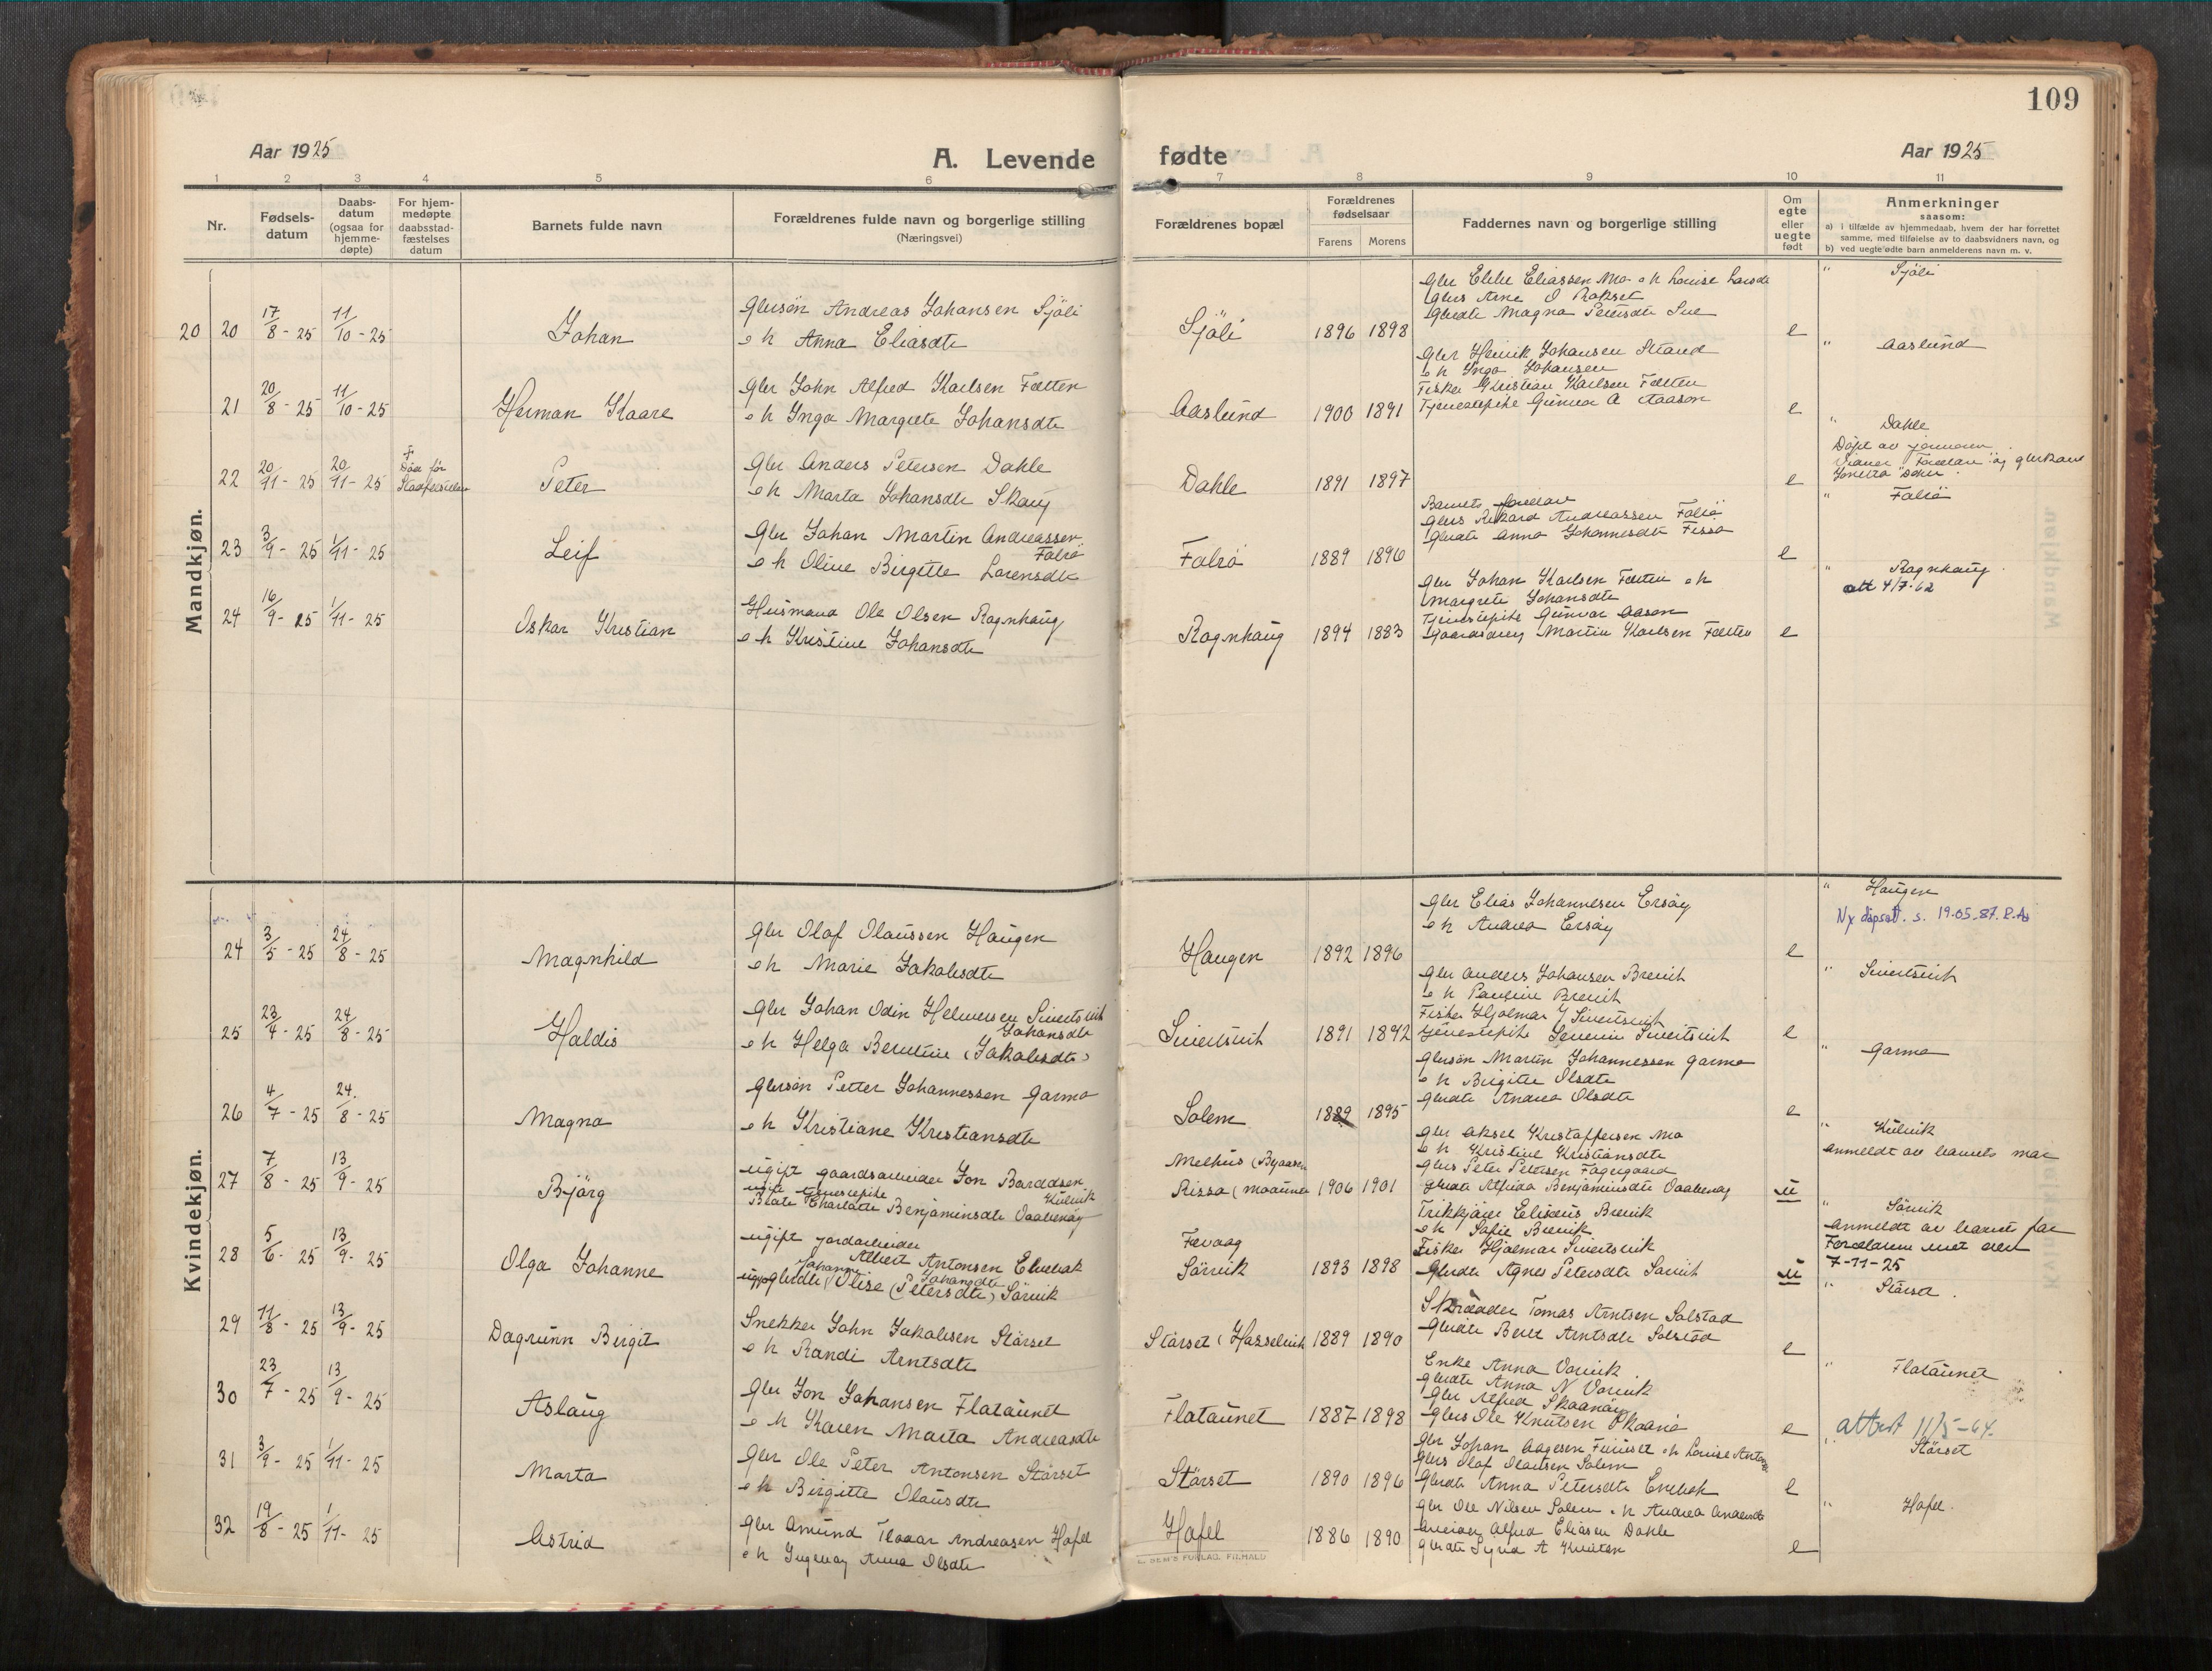 109
Aar 1925
A. Levende
fødte
Aar 1925
1 2 3 4 5 6 7 8 9 10 11
Nr.
Fødsels-
datum
Daabs-
datum
(ogsaa for
hjemme-
døpte)
For hjem-
medøpte
daabsstad-
fæstelses
datum
Barnets fulde navn
Forældrenes fulde navn og borgerlige stilling
(Næringsvei)
Forældrenes bopæl
Forældrenes
fødselsaar
Farens Morens
Faddernes navn og borgerlige stilling
Om
egte
eller
uegte
født
Anmerkninger
saasom:
a) i tilfælde av hjemmedaab, hvem der har forrettet
samme, med tilføielse av to daabsvidners navn, og
b) ved uegte fødte barn anmelderens navn m. v.
Mandkjøn.
20 20 17/8 - 25 11/10 - 25
Johan
Gbrsøn Andreas Johansen Sjöli
o h Anna Eliasdtr
Sjöli 1896 1898
Gbr Elias Eliassen Mo o h Louise Larsdtr
Gbrs Arne O Rokset
Gbrdtr Magna Petersdtr
e
" Sjöli
21 20/8 - 25 11/10 - 25
Herman Kaare
Gbr John Alfred Karlsen Fætten
o h Inga Margrete Johansdtr
Aaslund 1900 1891
Gbr Henrik Johansen Strand
o h Inga Johansen
Fisker Kristian Karlsen Fætten
Tjenestepike Gunvor A Aasen
e
" Aaslund
22 20/11 - 25 20/11 - 25
† Død før
Stadfestelsen
Peter
Gbr Anders Petersen Dahle
o h Marta Johansdtr Skaug
Dahle 1891 1897
e
" Dahle
Döpt av jormoren
Vidner Foreldre og gbrkone
23 3/9 - 25 1/11 - 25
Leif
Gbr Johan Martin Andreassen
Falrö
o h Oline Birgitte Lorensdtr
Falrö 1889 1896
Barnets foreldre
Gbrs Rikard Andreassen Falrö
Gbrdtr Anna Johannesdtr Fissa
e
" Falrö
24 16/9 - 25 1/11 - 25
Oskar Kristian
Husmand Ole Olsen Ragnhaug
o h Kristine Johansdtr
Ragnhaug 1894 1883
Gbr Johan Karlsen Fætten o h
Margrete Johansdtr
Tjenestepike Gunvor Aasen
Gaardsdreng Martin Karlsen Fætten
e
" Ragnhaug
att 4/7-62
Kvindekjøn.
24 3/5 - 25 24/8 - 25
Magnhild
Gbr Olaf Olaussen Haugen
o h Marie Jakobsdtr
Haugen 1892 1896
Gbr Elias Johannesen Ersöy
o h Andrea Ersöy
e
" Haugen
Ny dåpsatt. s. 19.05.87. R.As
25 23/4 - 25 24/8 - 25
Haldis
Gbr Johan Odin Helmersen Sivertsvik
Johansdtr
o h Helga Berntine (Jakobsdtr)
Sivertsvik 1891 1892
Gbr Anders Johansen Brevik
o h Pauline Brevik
Fisker Hjalmar J Sivertsvik
Tjenestepike Severine Sivertsvik
e
" Sivertsvik
26 4/7 - 25 24/8 - 25
Magna
Gbrsøn Petter Johannessen Garmo
o h Kristiane Kristiansdtr
Solem 1889 1895
Gbrsøn Martin Johannessen Garmo
o h Birgitte Olsdtr
Gbrdtr Andrea Olsdtr
e
" Garmo
27 7/8 - 25 13/9 - 25
Björg
ugift gaardsarbeider Jon Barddsen
Külvik
ugift tjenestepike
Beate Charlotte Benjaminsdtr Vaabenøy
Melhus (Byaasen
Rissa (Moaunet 1906 1901
Gbr Aksel Kristoffersen Mo
o h Kristine Kristiansdtr
Gbrs Peter Petersen Fagergaard
Gbrdtr Alfrida Benjaminsdtr Vaabenøy
u
" Külvik
Anmeldt av barnets mor
28 5/6 - 25 13/9 - 25
Olga Johanne
ugift jordarbeider
Albert Antonsen Enebak
Johanne Johansdtr
ugift gbrdtr (Otise (Petersdtr) Sörvik
Fevaag
Sörvik 1893 1898
Elisæus Brevik
o h Sofie Brevik
Fisker Hjalmar Sivertsvik
Gbrdtr Agnes Petersdtr Sörvik
u
" Sörvik
Anmeldt av barnets far
7-11-25
29 11/8 - 25 13/9 - 25
Dagrunn Birgit
Snekker John Jakobsen Störset
o h Randi Arntsdtr
Störset (Hasselvik 1889 1890
Skrædder Tomas Arntsen Solstad
Gbrdtr Beret Arntsdtr Solstad
e
" Störset
30 23/7 - 25 13/9 - 25
Aslaug
Gbr Jon Johansen Flataunet
o h Karen Marta Andreasdtr
Flataunet 1887 1898
Enke Anna Vorvik
Gbrdtr Anna N Vorvik
Gbr Alfred Skaanöy
Gbrs Ole Knutsen Skaanö
e
" Flataunet
attest 11/5-64.
31 3/9 - 25 1/11 - 25
Marta
Gbr Ole Peter Antonsen Störset
o h Birgitte Olausdtr
Störset 1890 1896
Gbr Johan Aagesen Furuset o h Louise
Gbrs Olaf Olaisen Solem
Gbrdtr Anna Petersdtr Enebak
e
" Störset
32 19/8 - 25 1/11 - 25
Astrid
Gbr Amund Andreasen Hofel
o h Ingeborg Anna Olsdtr
Hofel 1886 1890
Gbr Ole Nilsen Solem o h Andrea
Arbeider Alfred Eliasen Dahle
Gbrdtr Signe A Knuten
e
" Hofel.